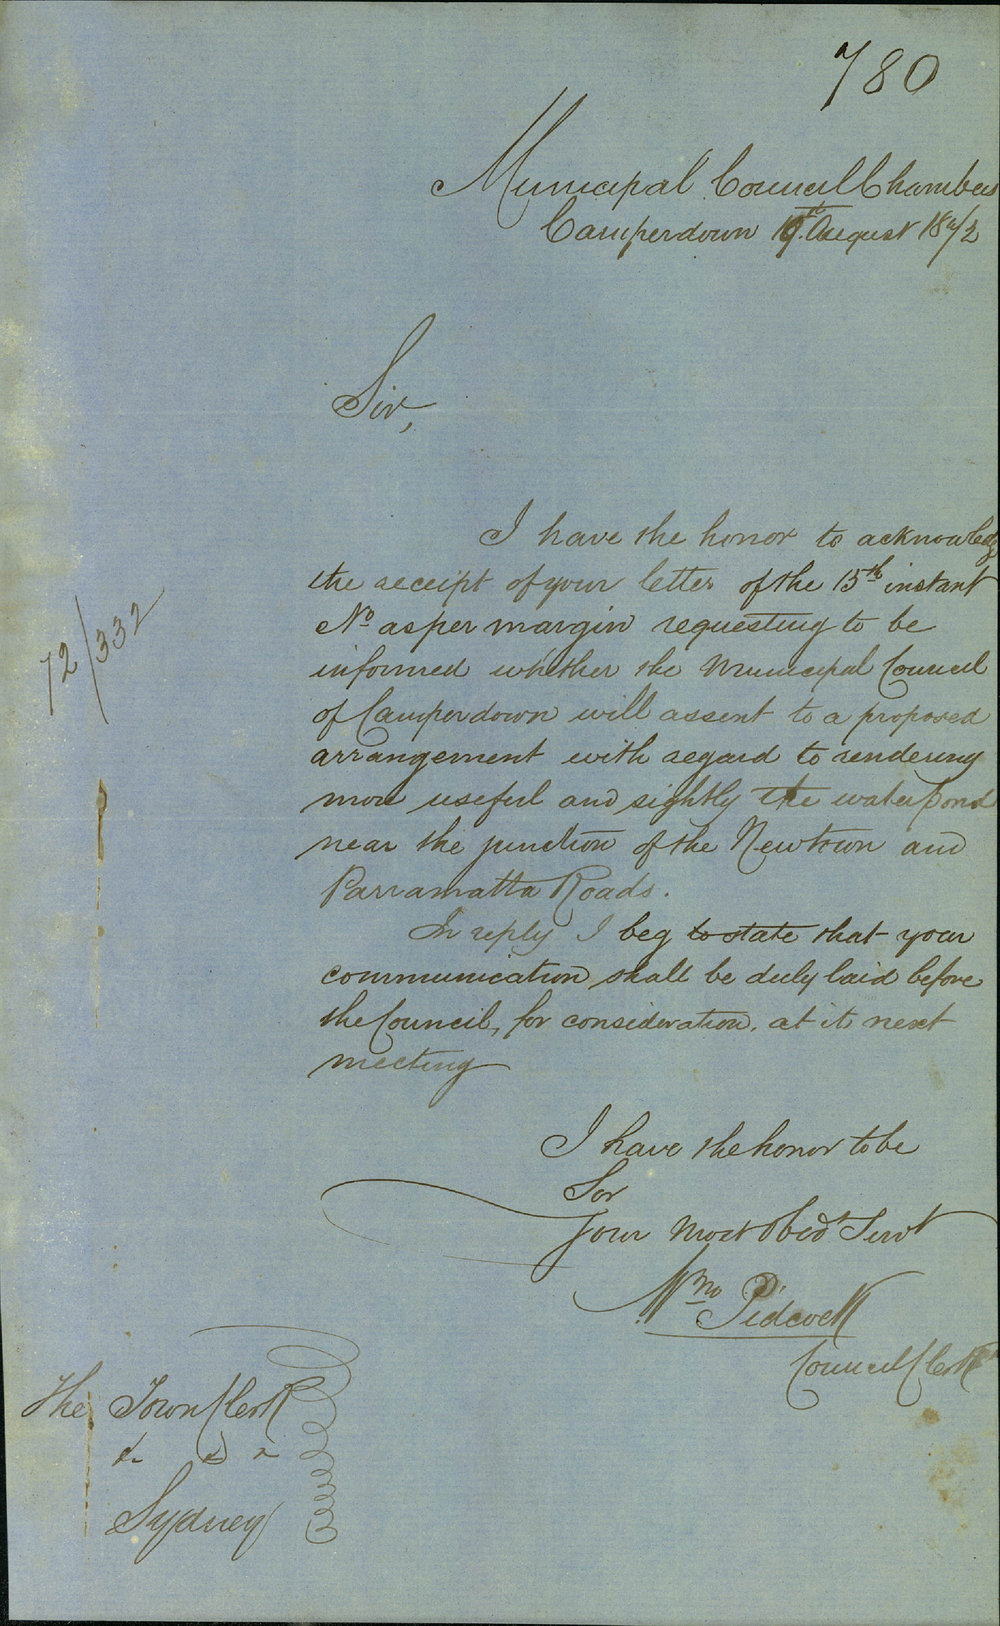 780
Municipal Council Chambers
Camperdown 19th August 1872
Sir,
I have the honor to acknowledge
the receipt of your letter of the 15th instant
No as per margin requesting to be
72/332
informed whether the Municipal Council
of Camperdown will assent to a proposed
arrangement with regard to rendering
more useful and sightly the water pond
near the junction of the Newtown and
Parramatta Roads.
In reply I beg to state that your
communication shall be duly laid before
the Council, for consideration, at its next
meeting
I have the honor to be
Sir
Your Most Obedt Servt
Wm Pidcock
Council Clerk
The Town Clerk
&c &c &c
Sydney